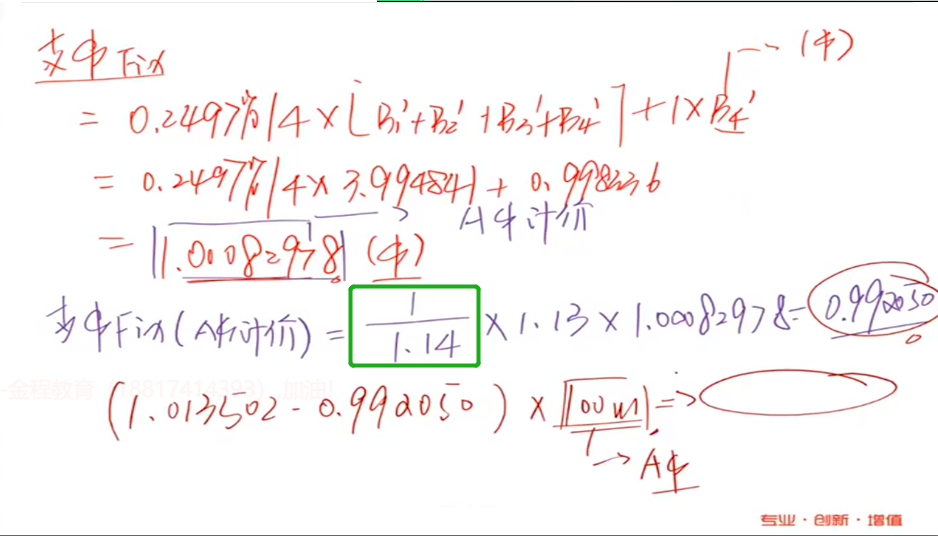 支中Fix
(中)
= 0.2497%/4 × [B₁' + B₂' + B₃' + B₄'] + 1 × B₄'
= 0.2497%/4 × 3.994841 + 0.998236
A中计价
= |1.00082978| (中)
支中Fix(A中计价) = 1/1.14 × 1.13 × 1.00082978 = 0.992050
金程教育(18817414393) 加油!
(1.013502 - 0.992050) × 100m =>
→ A中
专业·创新·增值